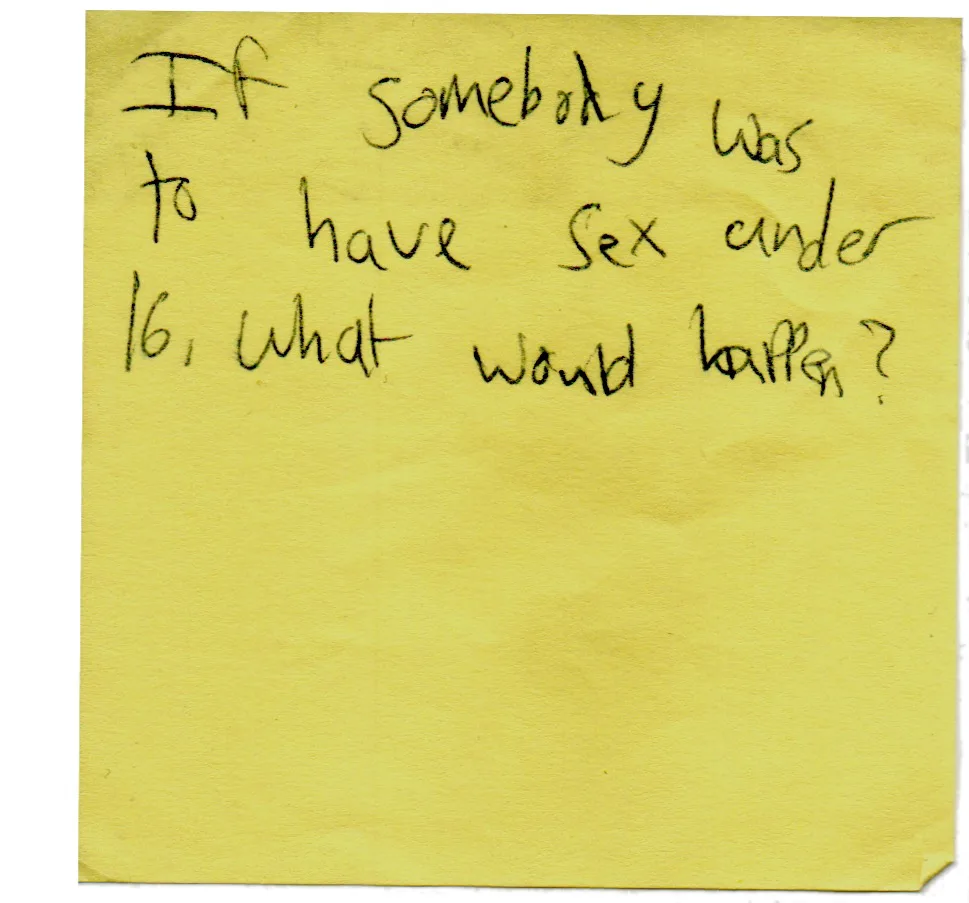 If somebody was
to have sex under
16, what would happen?